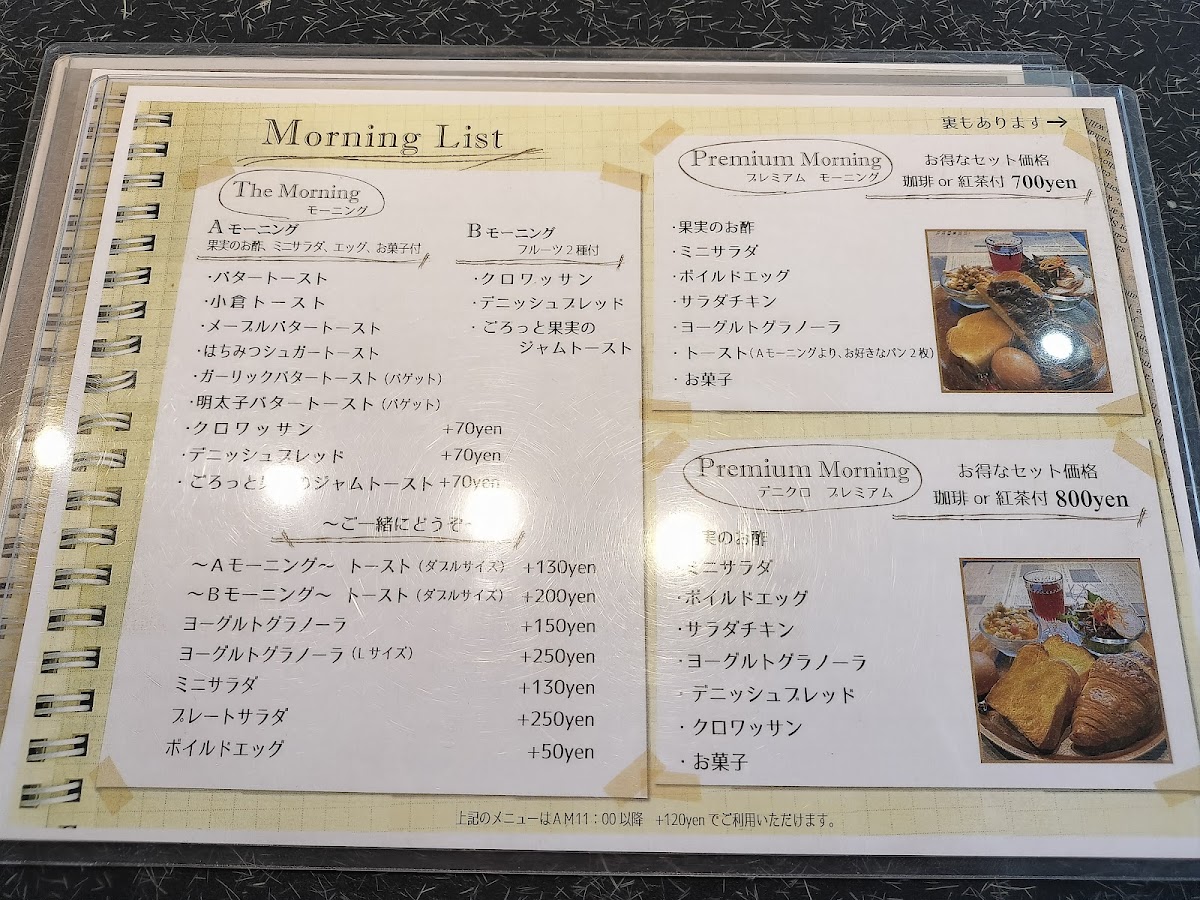 Morning List
裏もあります→
The Morning
モーニング
A モーニング
果実のお酢、ミニサラダ、エッグ、お菓子付
・バタートースト
・小倉トースト
・メープルバタートースト
・はちみつシュガートースト
・ガーリックバタートースト（バゲット）
・明太子バタートースト（バゲット）
・クロワッサン +70yen
・デニッシュブレッド +70yen
・ごろっと果 のジャムトースト +70yen
B モーニング
フルーツ2種付
・クロワッサン
・デニッシュブレッド
・ごろっと果実の
ジャムトースト
～ご一緒にどうぞ～
～Aモーニング～ トースト（ダブルサイズ） +130yen
～Bモーニング～ トースト（ダブルサイズ） +200yen
ヨーグルトグラノーラ +150yen
ヨーグルトグラノーラ（Lサイズ） +250yen
ミニサラダ +130yen
プレートサラダ +250yen
ボイルドエッグ +50yen
Premium Morning
プレミアム モーニング
お得なセット価格
珈琲 or 紅茶付 700yen
・果実のお酢
・ミニサラダ
・ボイルドエッグ
・サラダチキン
・ヨーグルトグラノーラ
・トースト（Aモーニングより、お好きなパン2枚）
・お菓子
Premium Morning
デニクロ プレミアム
お得なセット価格
珈琲 or 紅茶付 800yen
実のお酢
ミニサラダ
・ボイルドエッグ
・サラダチキン
・ヨーグルトグラノーラ
・デニッシュブレッド
・クロワッサン
・お菓子
上記のメニューはAM11：00以降 +120yenでご利用いただけます。